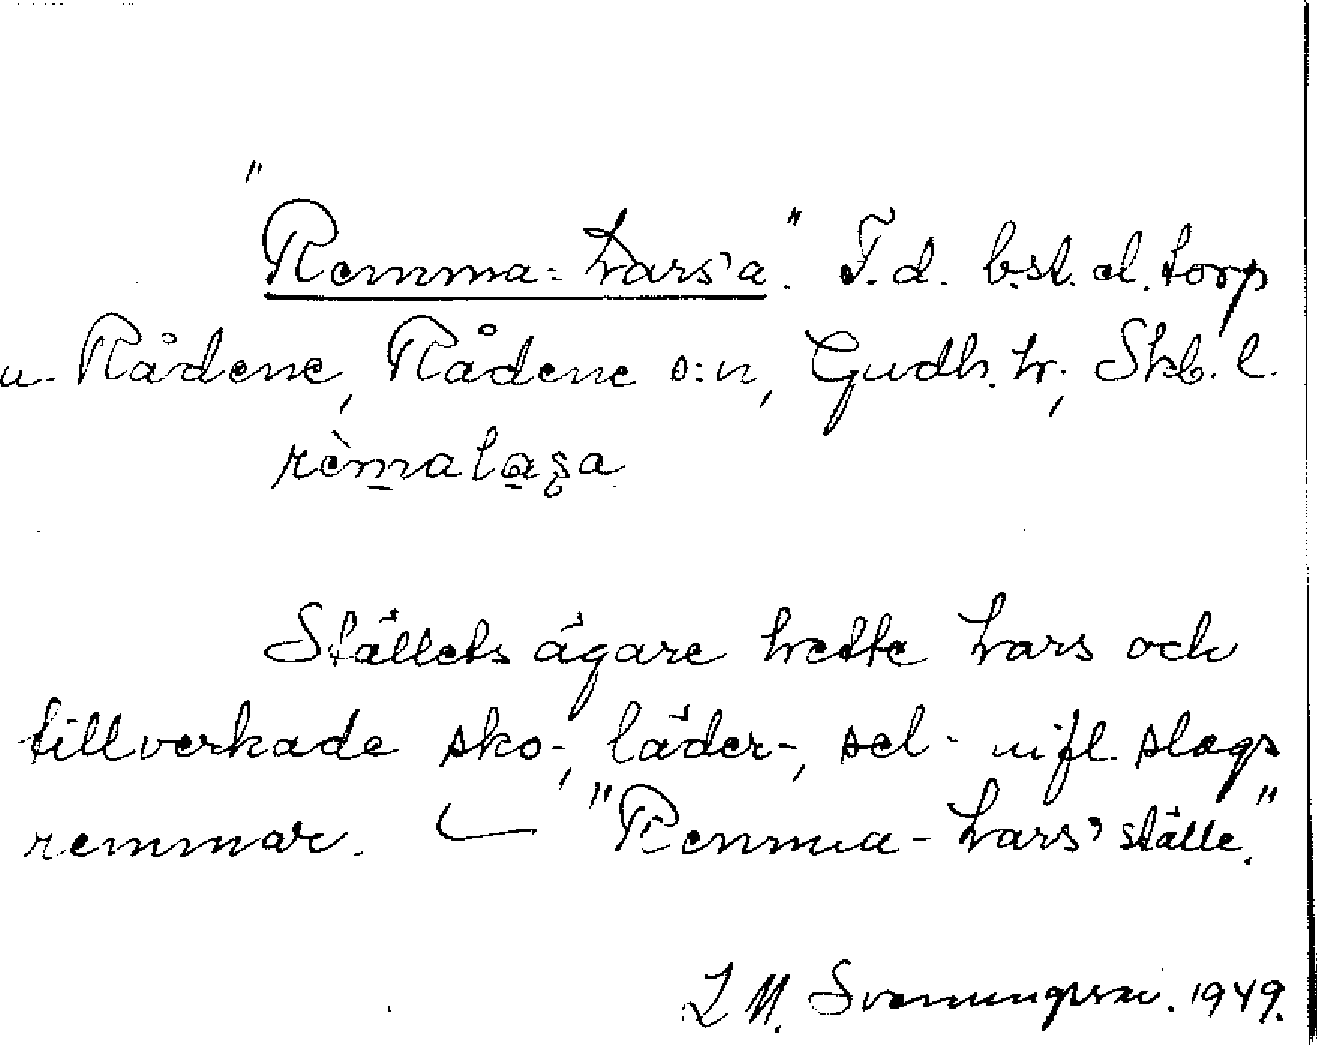 "Remma-Lars'a". F.d. bst. el. torp
u. Rådene, Rådene s:n, Gudh. hr., Skb. l.
rèmalaʂa
Ställets ägare hette Lars och
tillverkade sko-, läder-, sel- m.fl. slags
remmar. "Remma-Lars' ställe."
Svenungsson. 1949.